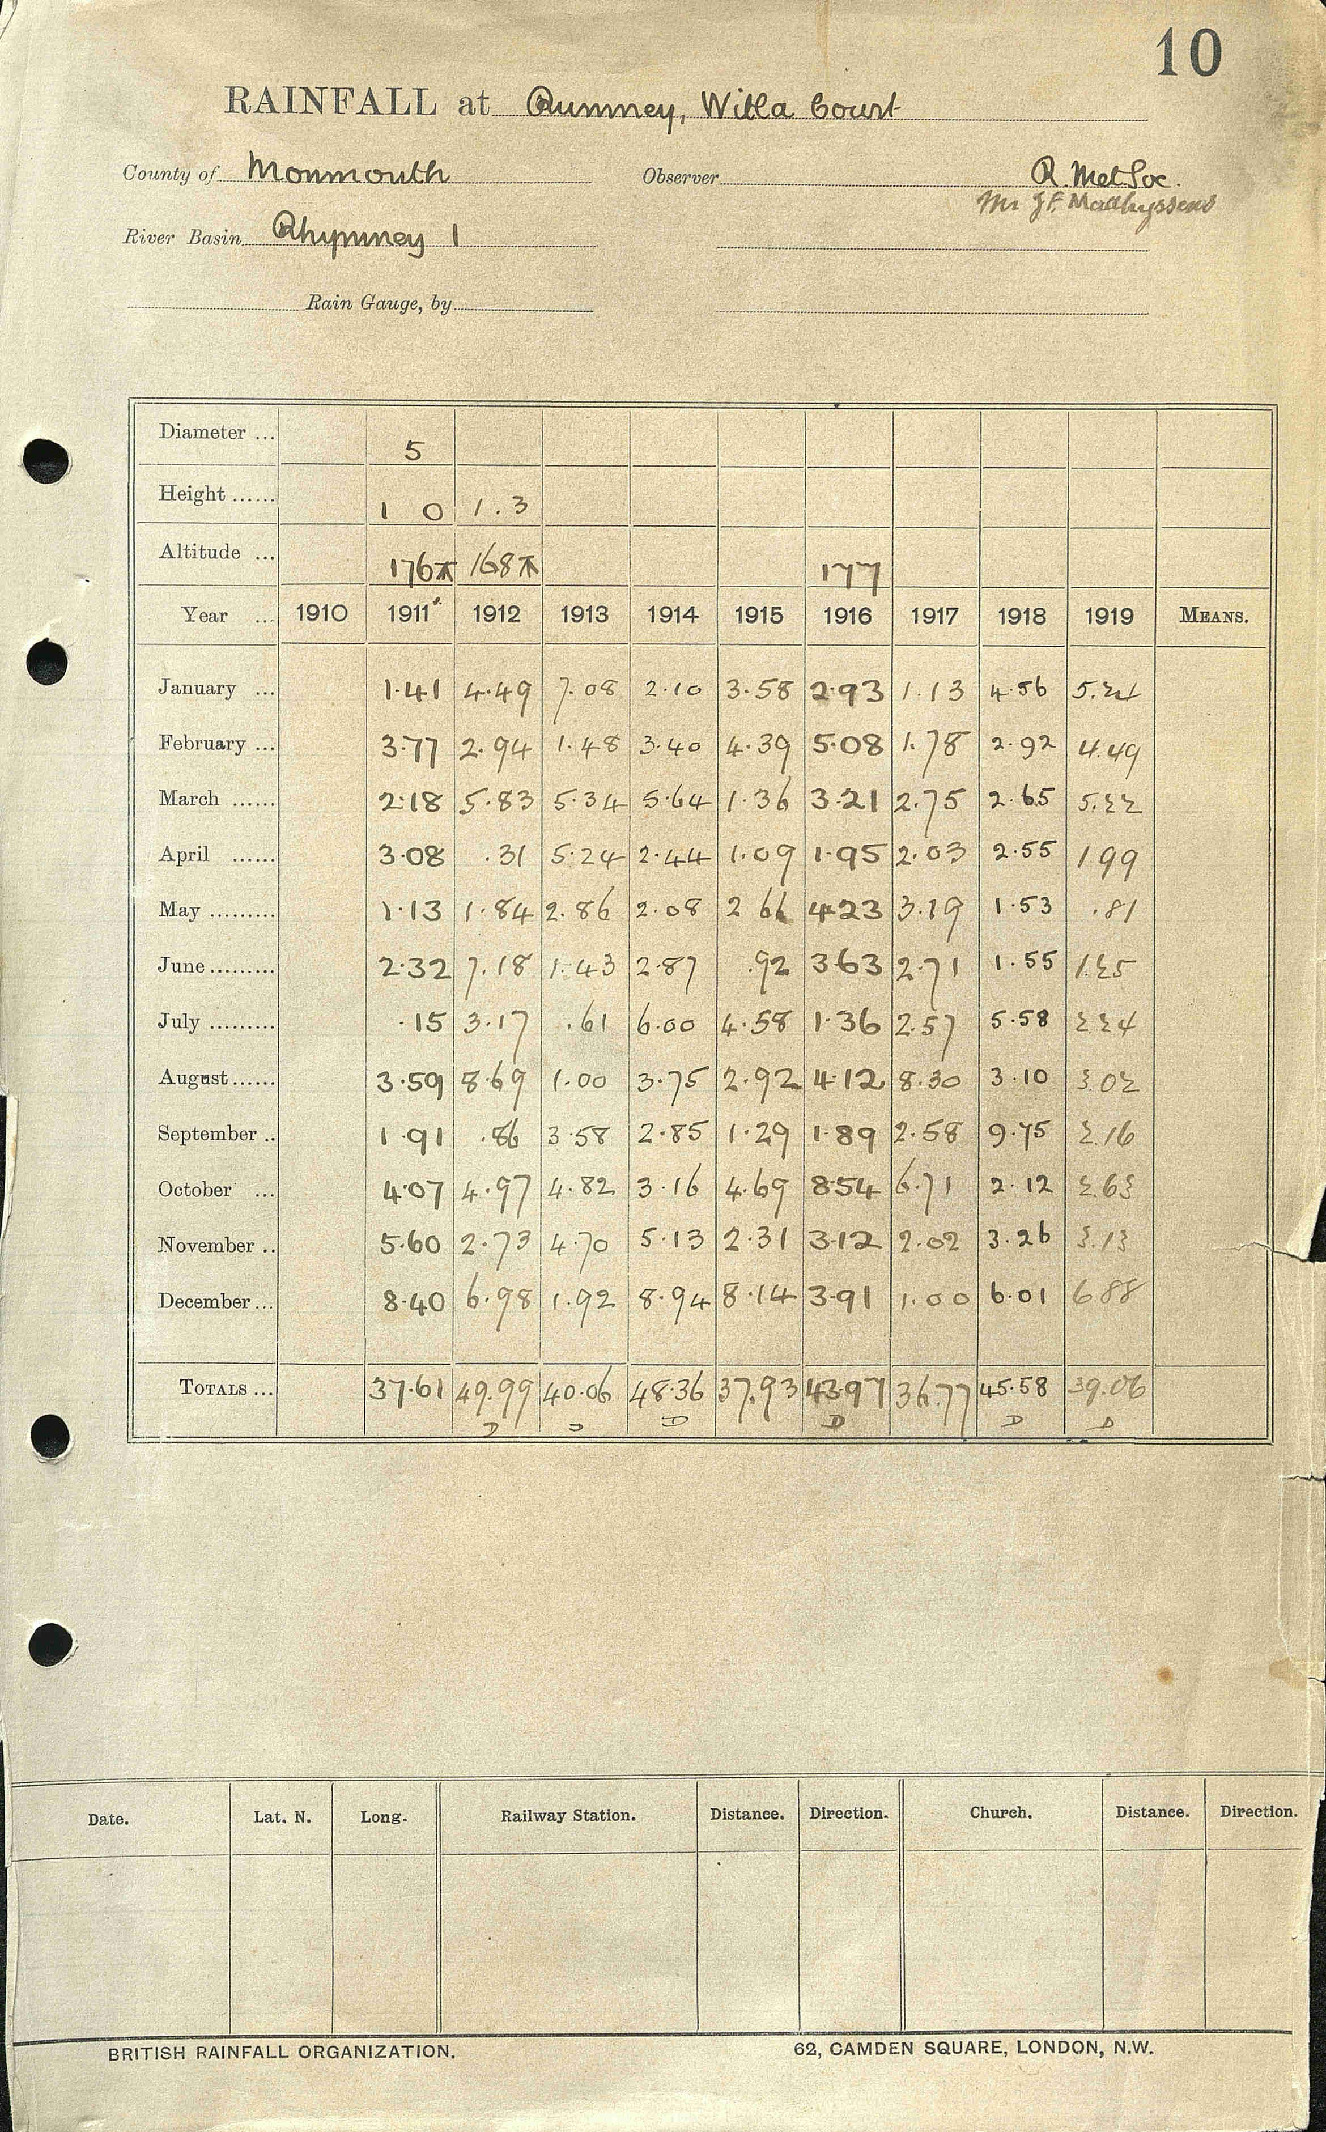 10
RAINFALL at Rumney, Witla Court
County of Monmouth Observer R. Met Soc.
Mr J F. Matthyssens
River Basin Rhymney 1
Rain Gauge, by
Diameter ... 5
Height ...... 1 0 1.3
Altitude ... 176 168 177
Year ... 1910 1911 1912 1913 1914 1915 1916 1917 1918 1919 MEANS.
January ... 1.41 4.49 7.08 2.10 3.58 2.93 1.13 4.56 5.24
February ... 3.77 2.94 1.48 3.40 4.39 5.08 1.78 2.92 4.49
March ...... 2.18 5.83 5.34 5.64 1.36 3.21 2.75 2.65 5.22
April ...... 3.08 .31 5.24 2.44 1.09 1.95 2.03 2.55 1 99
May ......... 1.13 1.84 2.86 2.08 2 66 4.23 3.19 1.53 .81
June ......... 2.32 7.18 1.43 2.87 .92 3.63 2.71 1.55 1.25
July ......... .15 3.17 .61 6.00 4.58 1.36 2.57 5.58 2 24
August ...... 3.59 8.69 1.00 3.75 2.92 4.12 8.30 3.10 3.02
September .. 1.91 .86 3.58 2.85 1.29 1.89 2.58 9.75 2.16
October ... 4.07 4.97 4.82 3.16 4.69 8.54 6.71 2.12 2.63
November .. 5.60 2.73 4.70 5.13 2.31 3.12 2.02 3.26 3.13
December ... 8.40 6.98 1.92 8.94 8.14 3.91 1.00 6.01 6 88
TOTALS ... 37.61 49.99 40.06 48.36 37.93 43.97 36.77 45.58 39.06
D D D D D D
Date. Lat. N. Long. Railway Station. Distance. Direction. Church. Distance. Direction.
BRITISH RAINFALL ORGANIZATION. 62, CAMDEN SQUARE, LONDON, N.W.